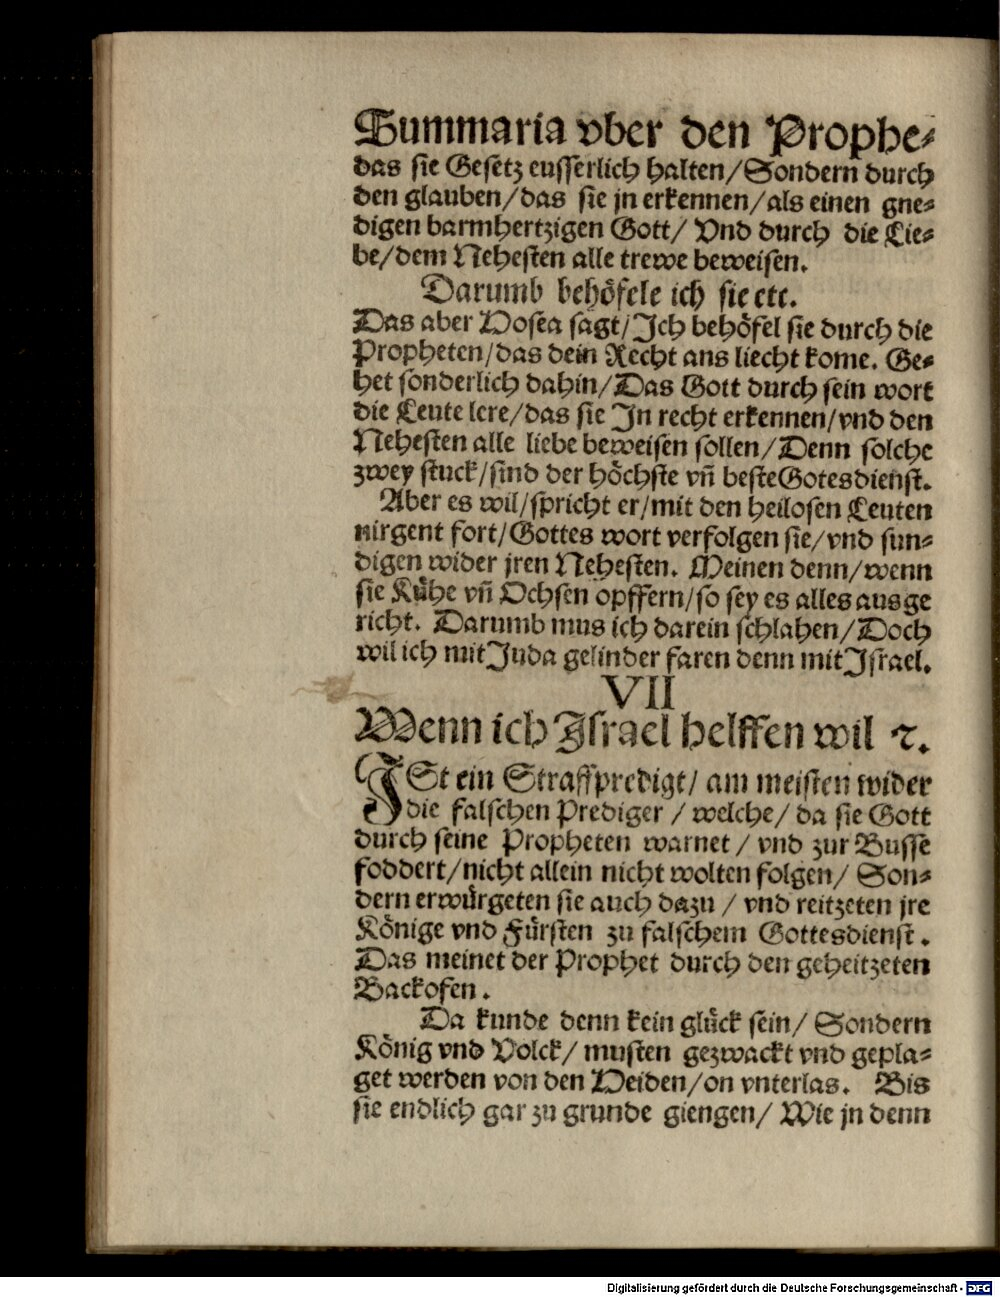 Summaria vber den Prophe⸗
das sie Gesetz eusserlich halten/Sondern durch
den glauben/das sie jn erkennen/als einen gne⸗
digen barmhertzigen Gott/ Vnd durch die Lie⸗
be/dem Nehesten alle trewe beweisen.
Darumb behöfele ich sie etc.
Das aber Hosea sagt/Ich behöfel sie durch die
Propheten/das dein Recht ans liecht kome. Ge⸗
het sonderlich dahin/Das Gott durch sein wort
die Leute lere/das sie In recht erkennen/vnd den
Nehesten alle liebe beweisen sollen/Denn solche
zwey stuck/sind der höchste vñ beste Gotesdienst.
Aber es wil/spricht er/mit den heilosen Leuten
nirgent fort/Gottes wort verfolgen sie/vnd sun⸗
digen wider jren Nehesten. Meinen denn/wenn
sie Kühe vñ Ochsen opffern/so sey es alles ausge
richt. Darumb mus ich darein schlahen/Doch
wil ich mit Juda gelinder faren denn mit Israel.
VII
Wenn ich Israel helffen wil ⁊.
ISt ein Straffpredigt/ am meisten wider
die falschen Prediger / welche/ da sie Gott
durch seine Propheten warnet / vnd zur Busse
foddert/nicht allein nicht wolten folgen/ Son⸗
dern erwürgeten sie auch dazu / vnd reitzeten jre
Könige vnd Fürsten zu falschem Gottesdienst.
Das meinet der Prophet durch den geheitzeten
Backofen.
Da kunde denn kein glück sein/ Sondern
König vnd Volck/ musten gezwackt vnd gepla⸗
get werden von den Heiden/on vnterlas. Bis
sie endlich gar zu grunde giengen/ Wie jn denn
Digitalisierung gefördert durch die Deutsche Forschungsgemeinschaft - DFG